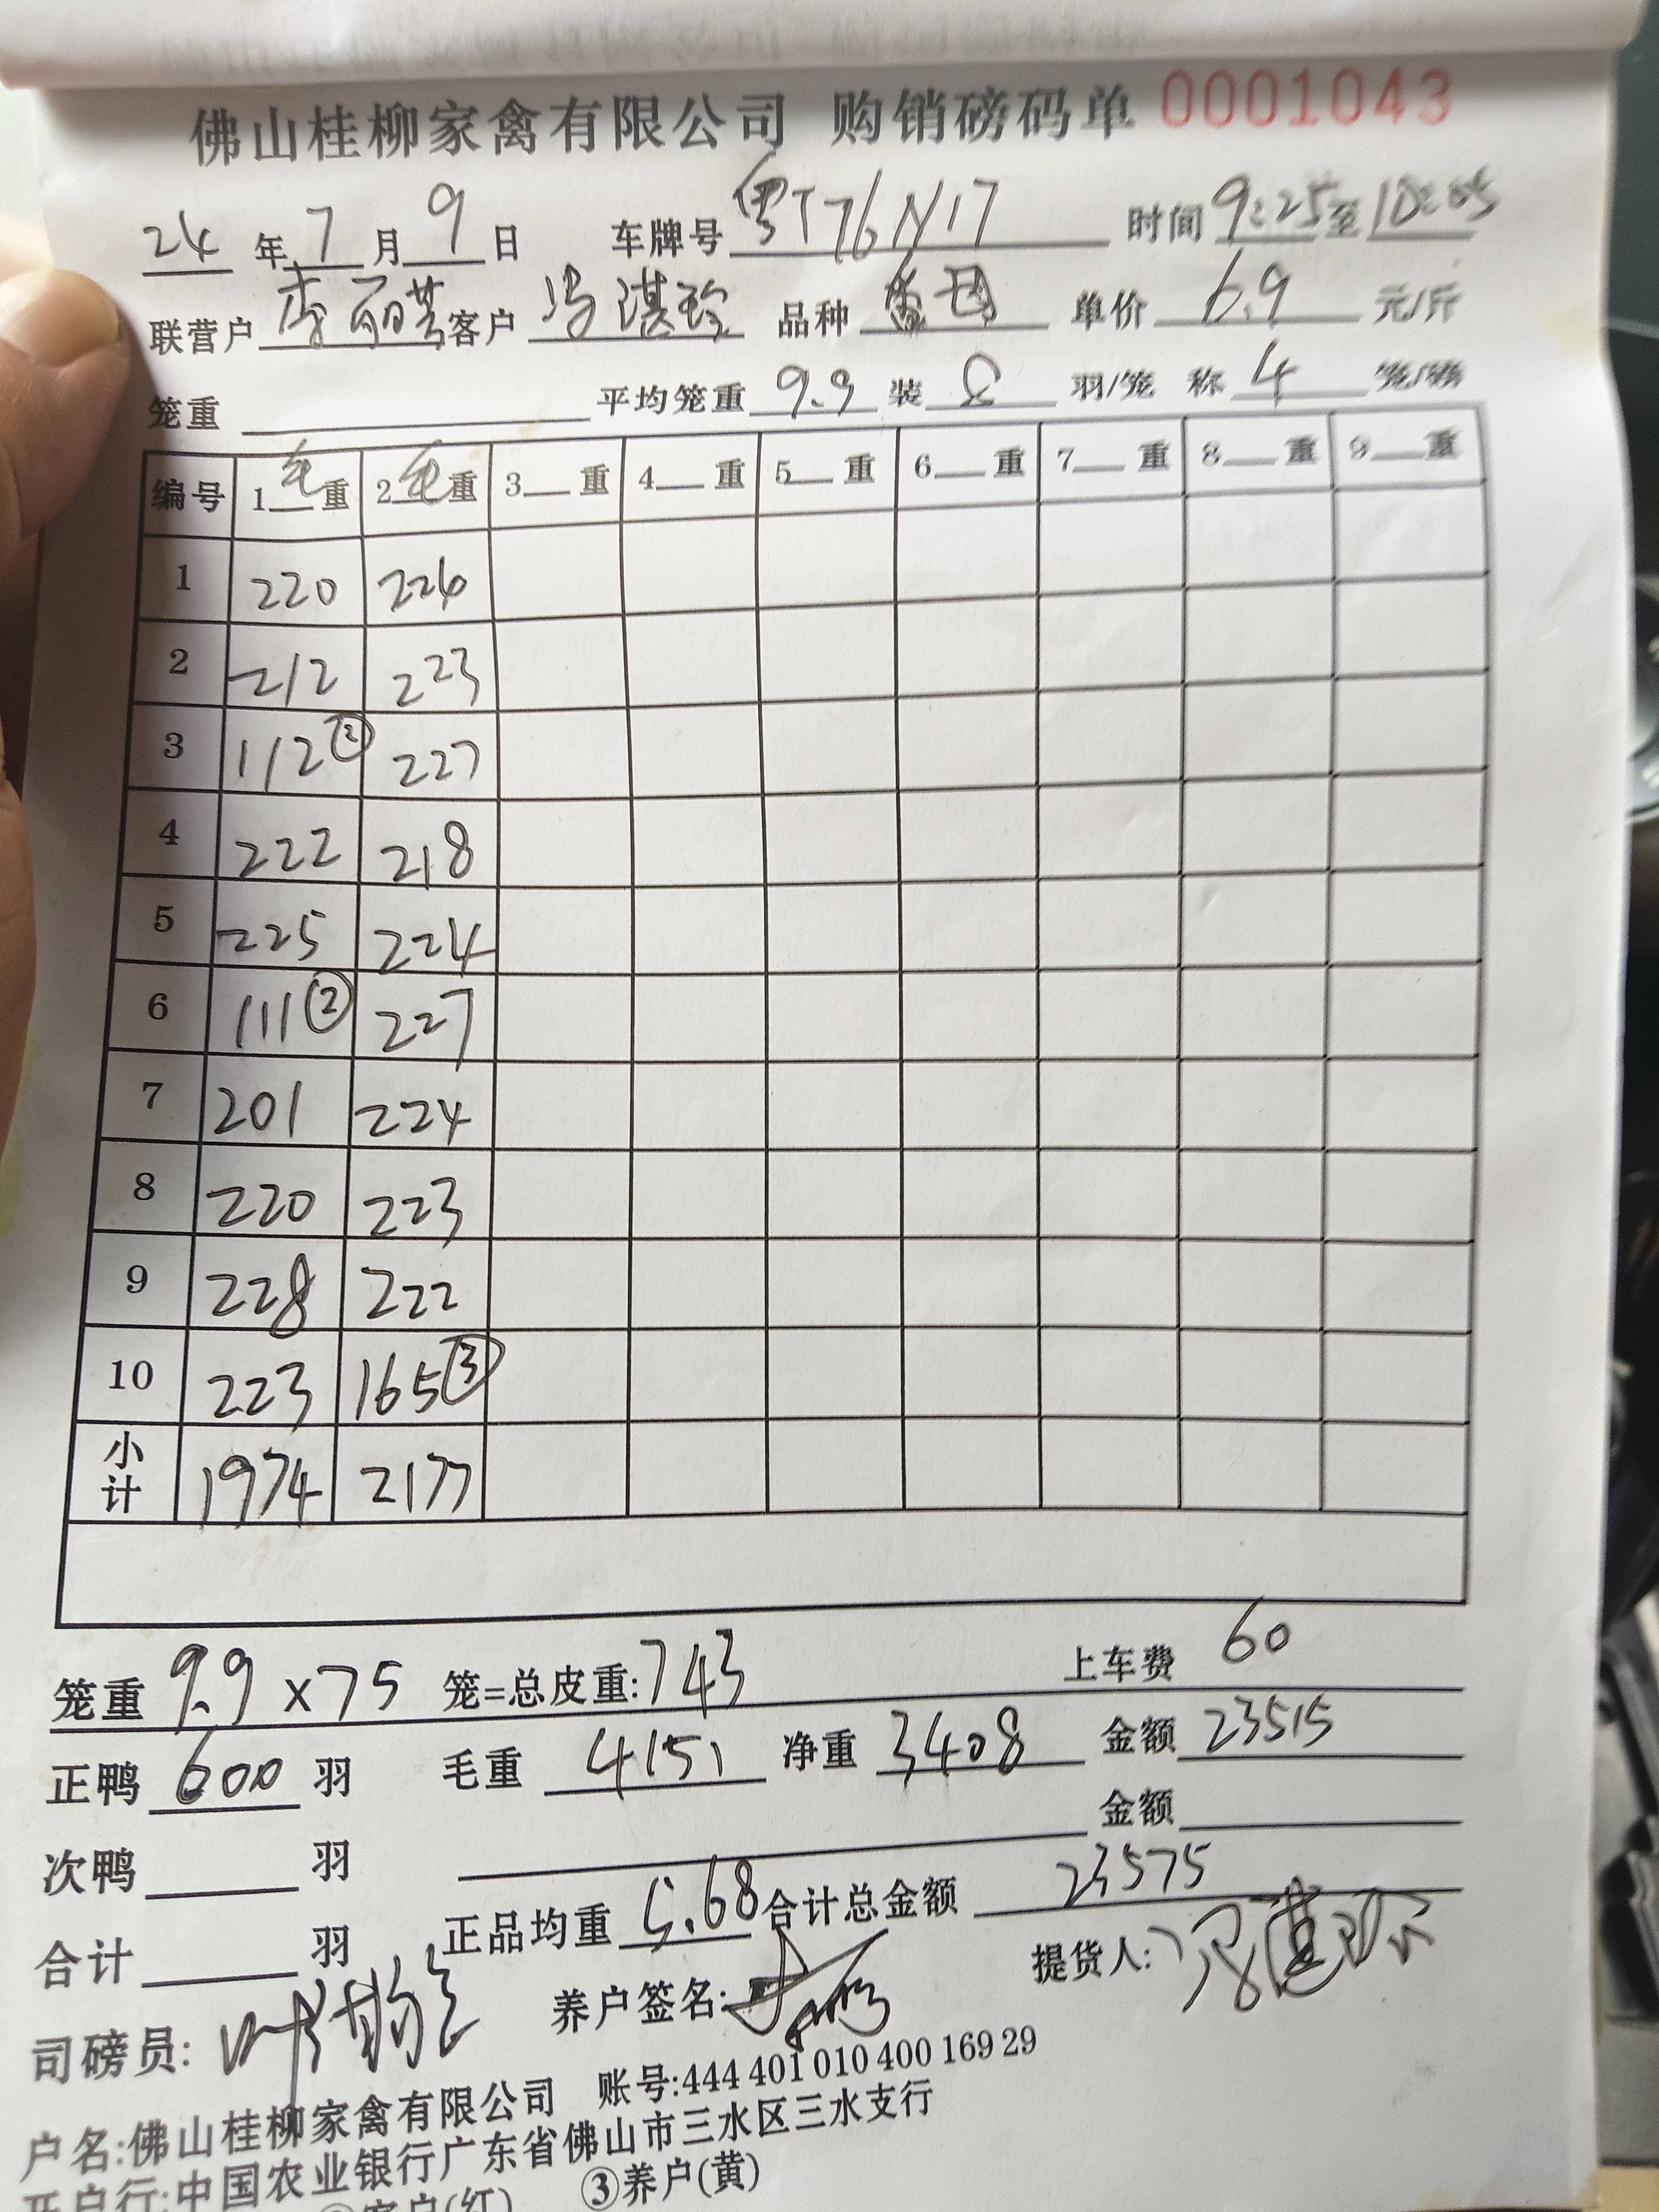 佛山桂柳家禽有限公司 购销磅码单 0001043
24 年 7 月 9 日 车牌号 粤T76N17 时间 9:25 至 10:05
联营户 李丽芸 客户 冯湛珍 品种 单价 6.9 元/斤
笼重 平均笼重 9.9 装 8 羽/笼 称 4 笼/磅
编号 1 毛 重 2 毛 重 3 重 4 重 5 重 6 重 7 重 8 重 9 重
1 220 226
2 212 223
3 112② 227
4 222 218
5 225 224
6 111② 227
7 201 224
8 220 223
9 228 222
10 223 165③
小计 1974 2177
笼重 9.9 x75 笼=总皮重: 743 上车费 60
正鸭 600 羽 毛重 4151 净重 3408 金额 23515
次鸭 羽 金额
合计 羽 正品均重 5.68 合计总金额 23575
司磅员: 养户签名: 提货人:
户名:佛山桂柳家禽有限公司 账号:444 401 010 400 169 29
开户行:中国农业银行广东省佛山市三水区三水支行
客户(红) ③养户(黄)